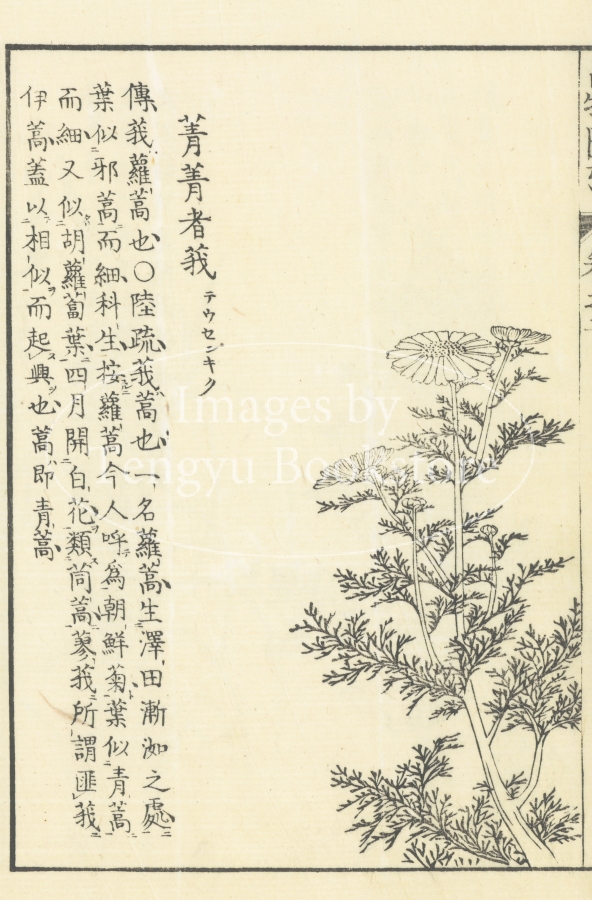 菁菁者莪 テウセンキク
傳莪蘿蒿也〇陸疏莪蒿也一名蘿蒿生澤田漸洳之處
葉似邪蒿而細科生按蘿蒿今人呼爲朝鮮菊葉似青蒿
而細又似胡蘿蔔葉四月開白花類茼蒿蓼莪所謂匪莪
伊蒿蓋以相似而起興也蒿即青蒿
Images by
Tengyu Bookstore